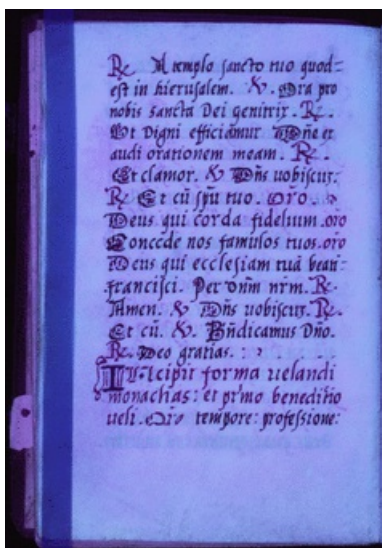 ℟. A templo sancto tuo quod=
est in hierusalem. ℣. Ora pro
nobis sancta Dei genitrix. ℟.
Vt Digni efficiamur Dñe et
audi orationem meam. ℟.
Et clamor. ℣ Dñs uobiscux.
℟ Et cũ spũ tuo. orõ.
Deus qui corda fidelium .orõ
Concede nos famulos tuos .orõ
Deus qui ecclesiam tuã beati=
francisci. Per Dñm nrm. ℟.
Amen. ℣ Dñs uobiscux. ℟.
Et cũ. ℣. Bñdicamus Dño.
℟. Deo gratias.
Incipit forma uelandi
monachas: et primo beneditio
ueli. Orõ tempore: professione: